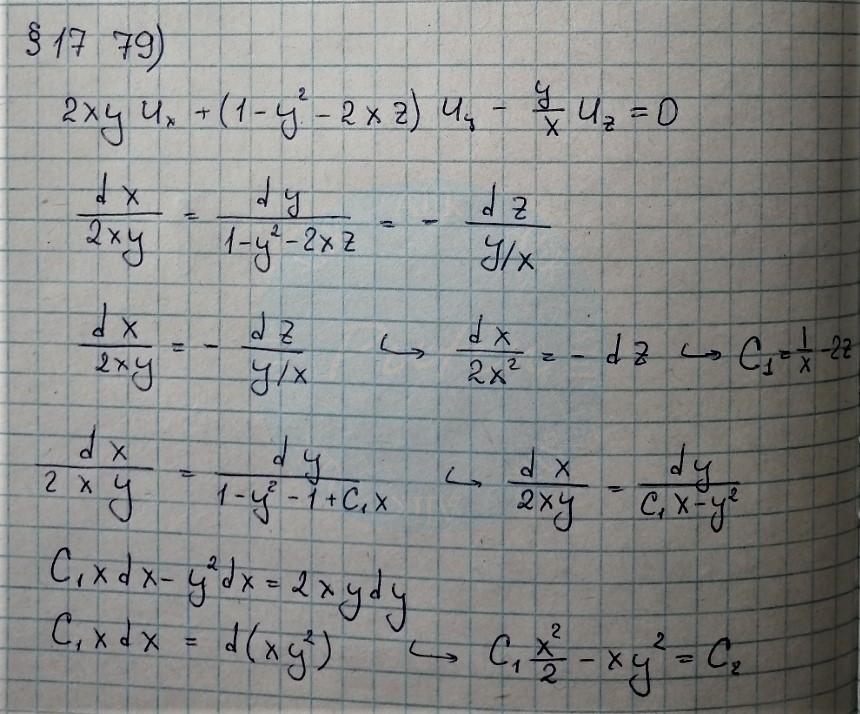 § 17 79)
2xy u_x + (1 - y² - 2xz) u_y - y/x u_z = 0
dx/2xy = dy/1-y²-2xz = - dz/y/x
dx/2xy = - dz/y/x ↪ dx/2x² = - dz ↪ C₁ = 1/x - 2z
dx/2xy = dy/1-y²-1+C₁x ↪ dx/2xy = dy/C₁x-y²
C₁xdx - y²dx = 2xydy
C₁xdx = d(xy²) ↪ C₁ x²/2 - xy² = C₂